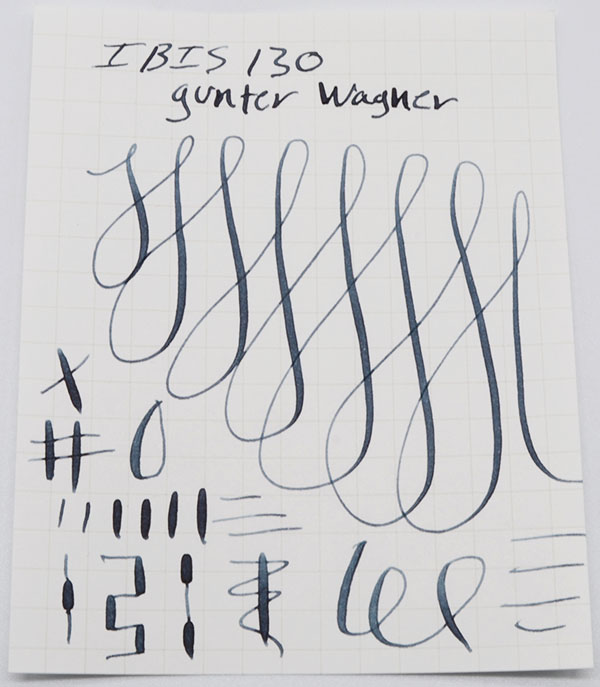 IBIS 130
gunter Wagner